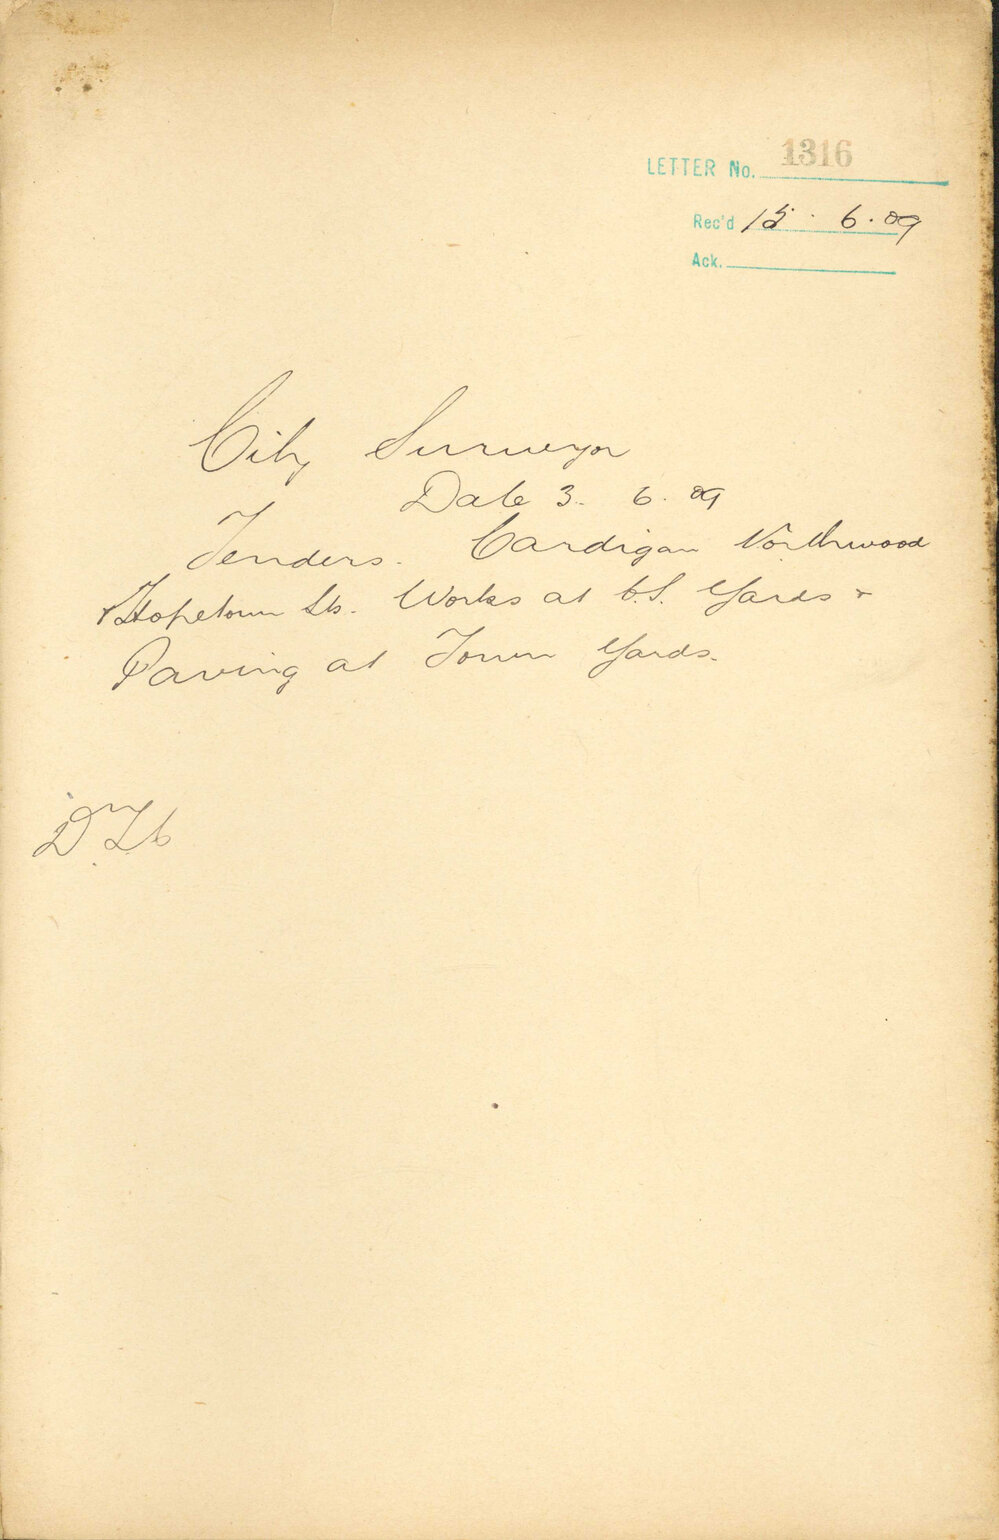 LETTER No. 1316
Rec'd 15. 6. 09
Ack.
City Surveyor
Date 3. 6. 09
Tenders. Cardigan Northwood
& Hopetoun Sts. Works at C.S. Yards &
Paving at Town Yards.